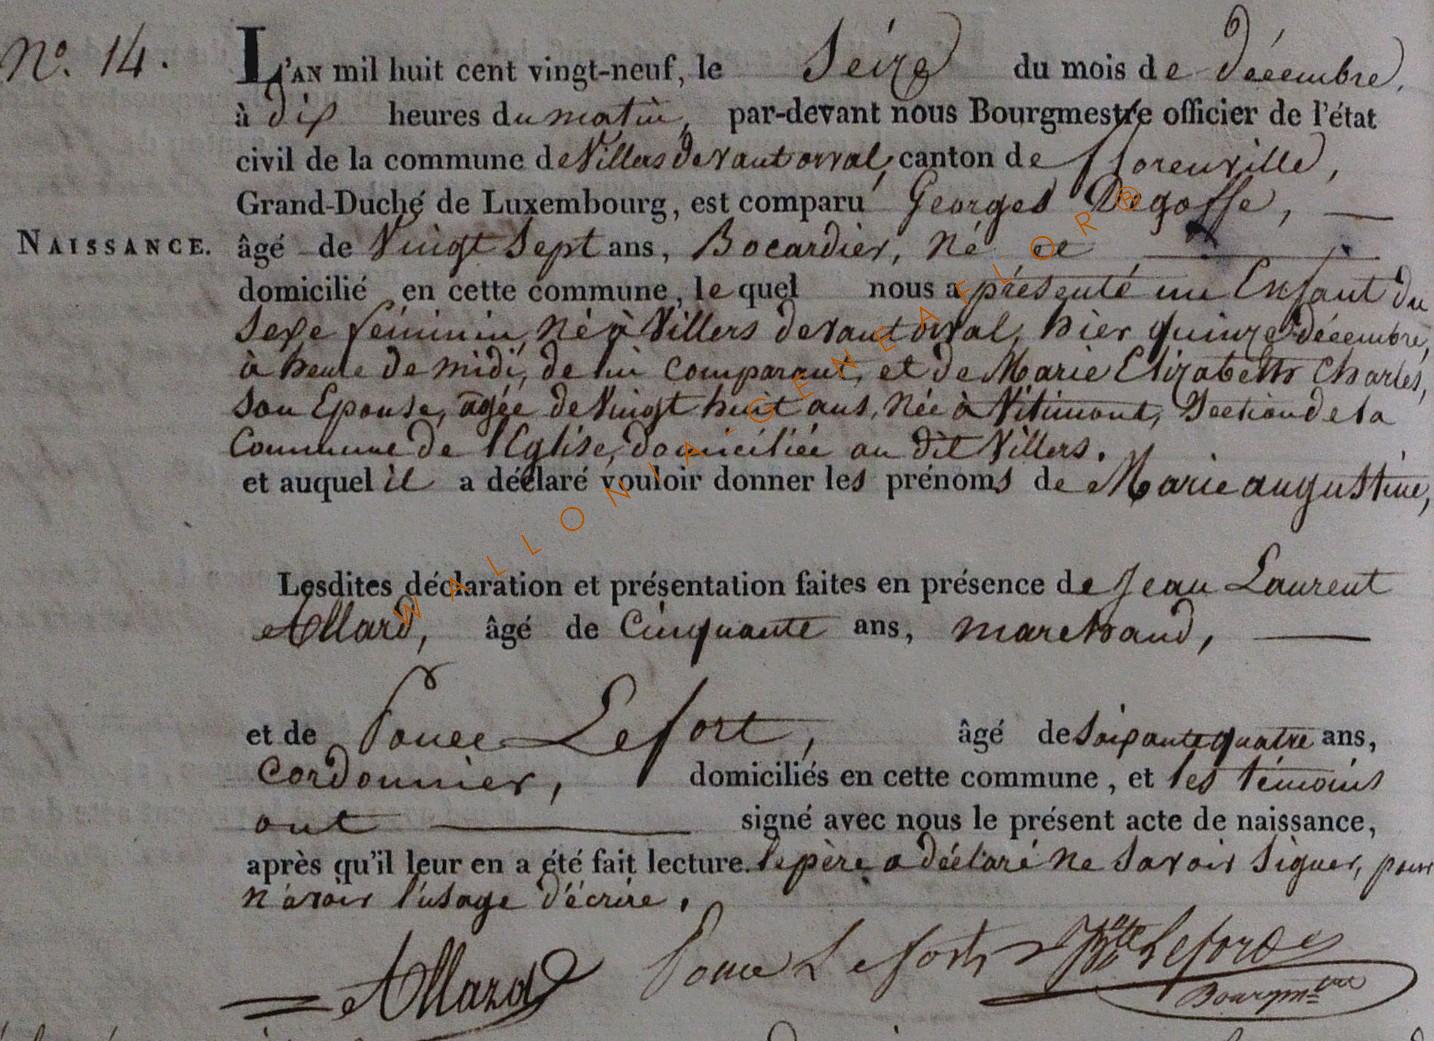 N°. 14.
L'AN mil huit cent vingt-neuf, le Séize du mois de décembre,
à dix heures du matin, par-devant nous Bourgmestre officier de l'état
civil de la commune de Villers devant orval, canton de florenville,
Grand-Duché de Luxembourg, est comparu Georges Degoffe, —
NAISSANCE. âgé de Vingt Sept ans, Bocardier, né ce —
domicilié en cette commune, le quel nous a présenté un Enfant du
sexe féminin, né à Villers devant orval, hier quinze décembre,
à heure de midi, de lui comparant, et de Marie Elizabeth Charles,
son Epouse, agée de Vingt huit ans, née à Vitimont, Section de la
Commune de l'Eglise, domiciliée au dit Villers.
et auquel il a déclaré vouloir donner les prénoms de Marie augustine,
Lesdites déclaration et présentation faites en présence de Jean Laurent
Allard, âgé de Cinquante ans, marchand, —
et de Ponce Lefort, âgé de soixante quatre ans,
cordonnier, domiciliés en cette commune, et les témoins
ont — signé avec nous le présent acte de naissance,
après qu'il leur en a été fait lecture. le père a déclaré ne savoir signer, pour
n'avoir l'usage d'écrire.
Allard Ponce Lefort
Bourgmtre
WALLONIA-GENEAFLOR®